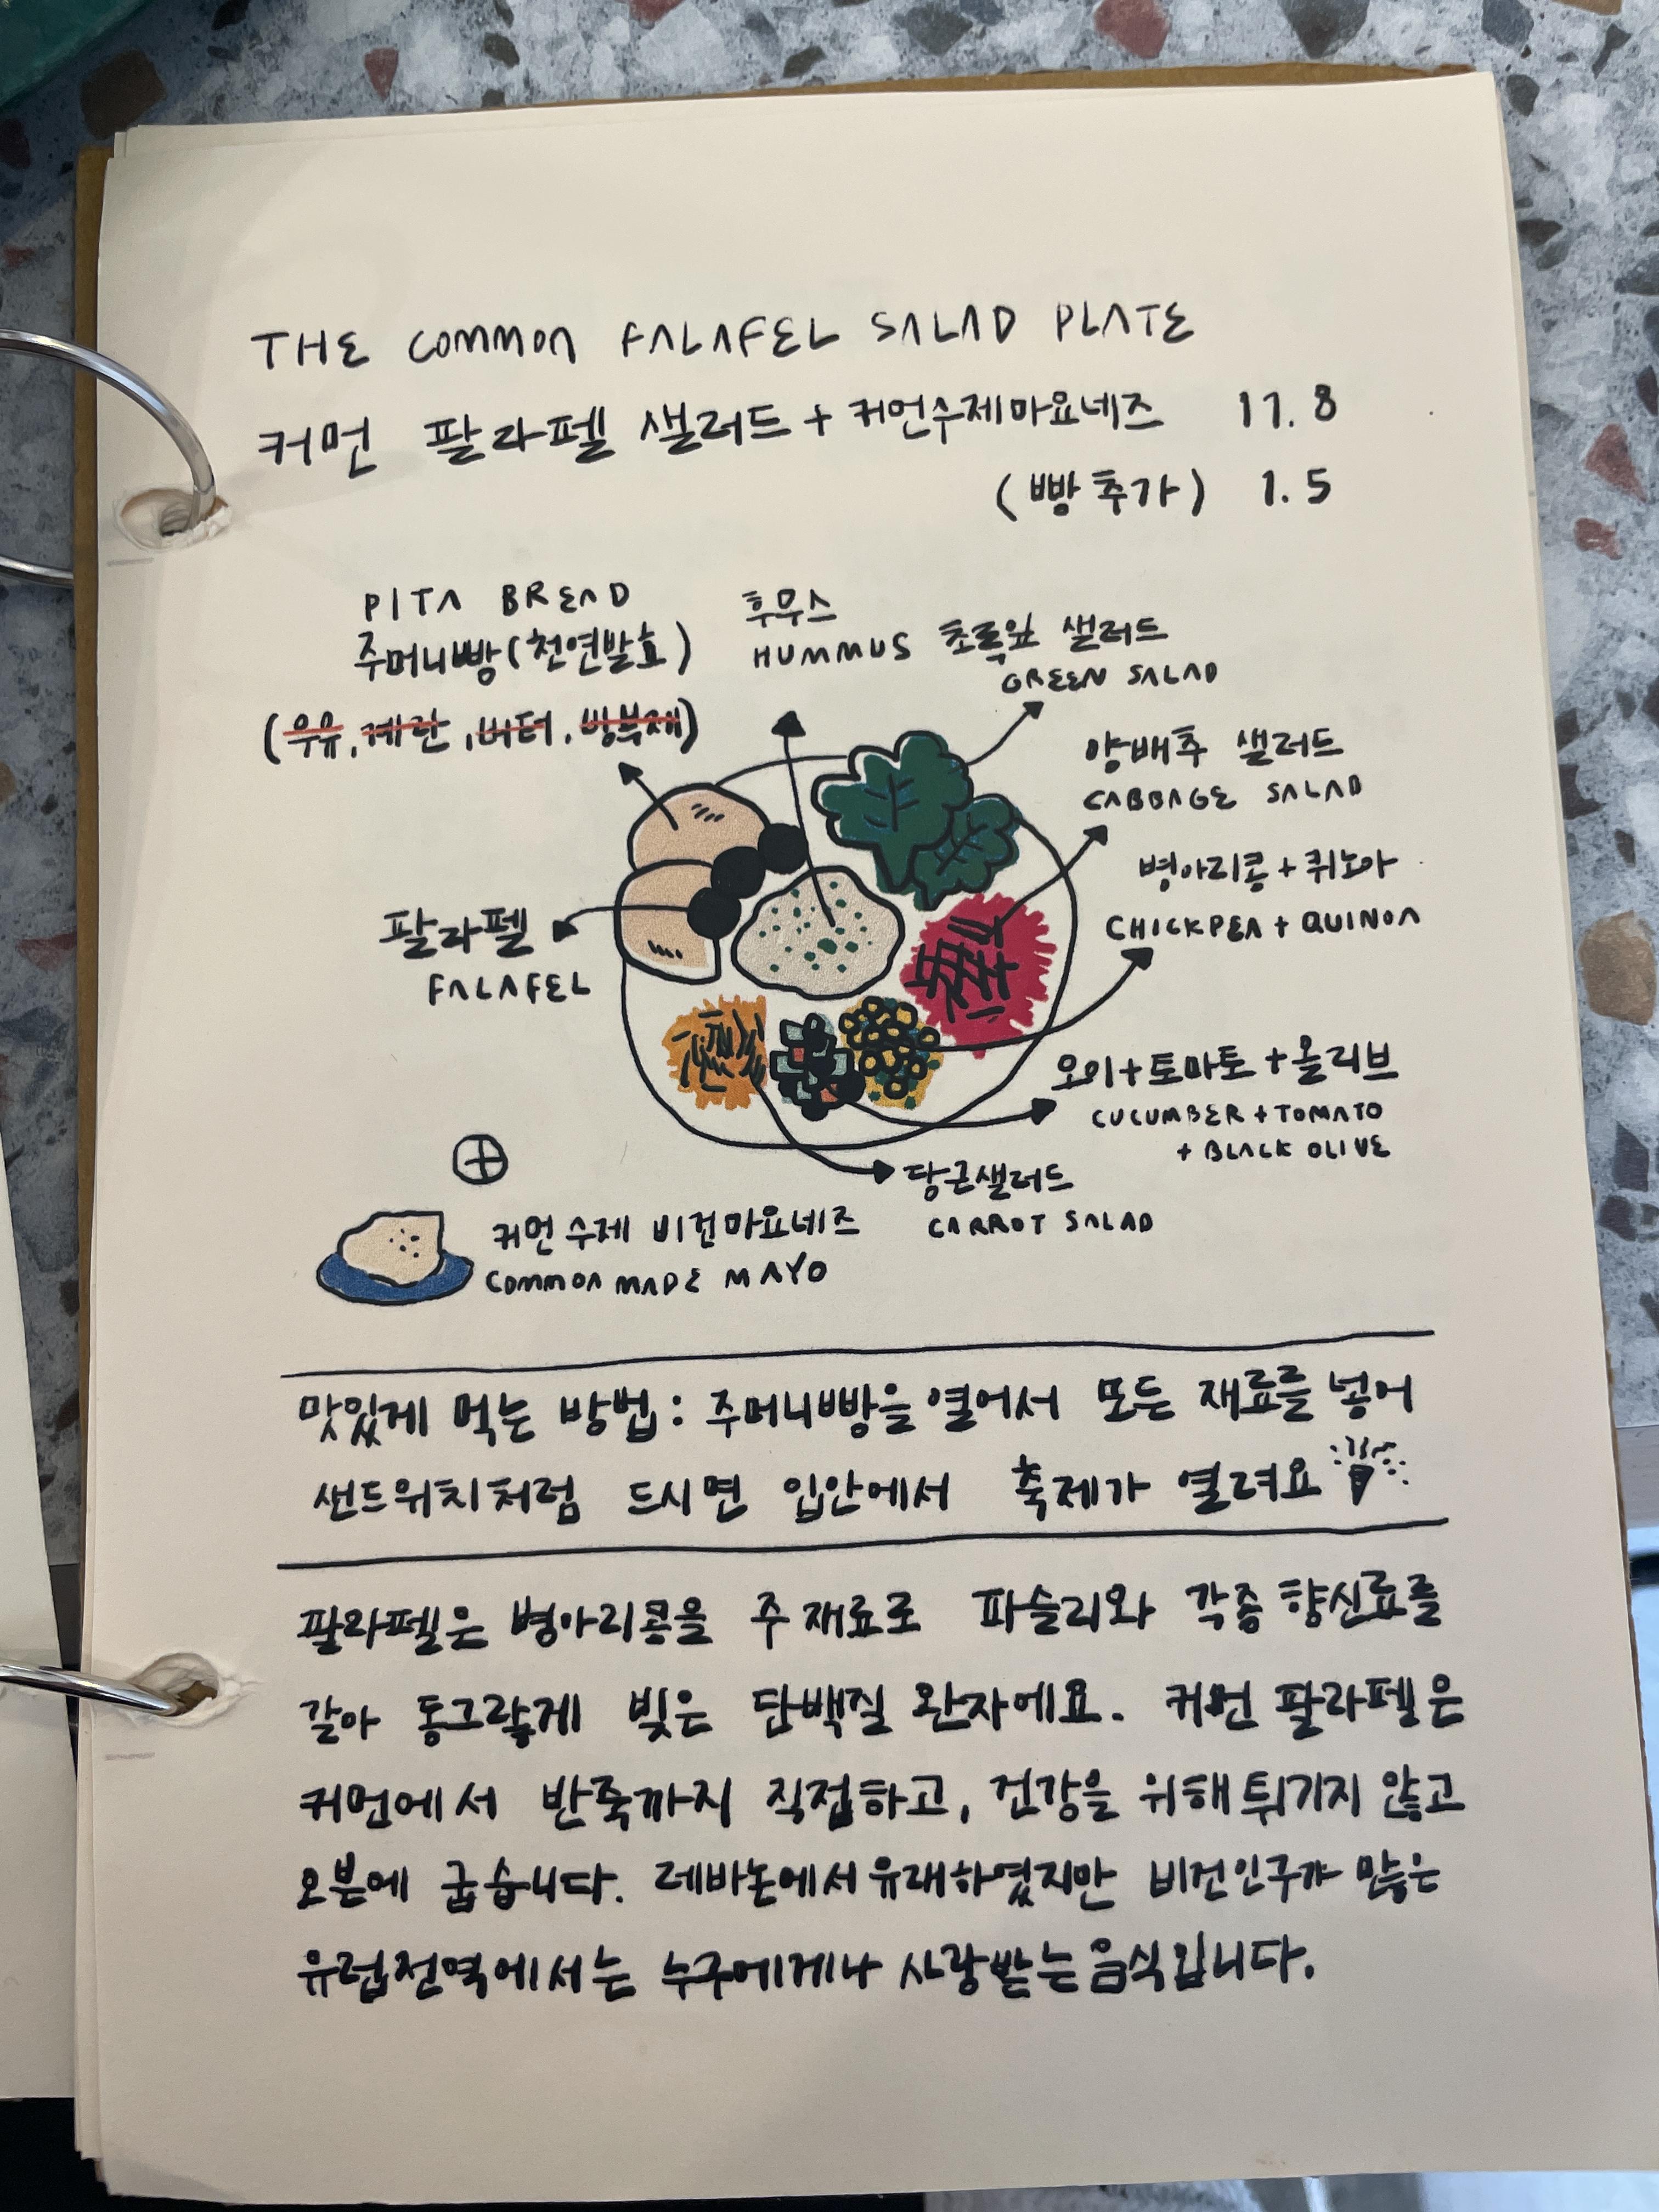 THE COMMON FALAFEL SALAD PLATE
커먼 팔라펠 샐러드 + 커먼수제마요네즈 17.8
(빵 추가) 1.5
PITA BREAD
주머니빵(천연발효)
(우유, 계란, 버터, 방부제)
후무스
HUMMUS
초록잎 샐러드
GREEN SALAD
양배추 샐러드
CABBAGE SALAD
병아리콩 + 퀴노아
CHICKPEA + QUINOA
팔라펠
FALAFEL
오이+토마토+올리브
CUCUMBER + TOMATO
+ BLACK OLIVE
당근샐러드
CARROT SALAD
커먼 수제 비건마요네즈
COMMON MADE MAYO
맛있게 먹는 방법 : 주머니빵을 열어서 모든 재료를 넣어
샌드위치처럼 드시면 입안에서 축제가 열려요
팔라펠은 병아리콩을 주 재료로 파슬리와 각종 향신료를
갈아 동그랗게 빚은 단백질 완자에요. 커먼 팔라펠은
커먼에서 반죽까지 직접하고, 건강을 위해 튀기지 않고
오븐에 굽습니다. 레바논에서 유래하였지만 비건인구가 많은
유럽전역에서는 누구에게나 사랑받는 음식입니다.